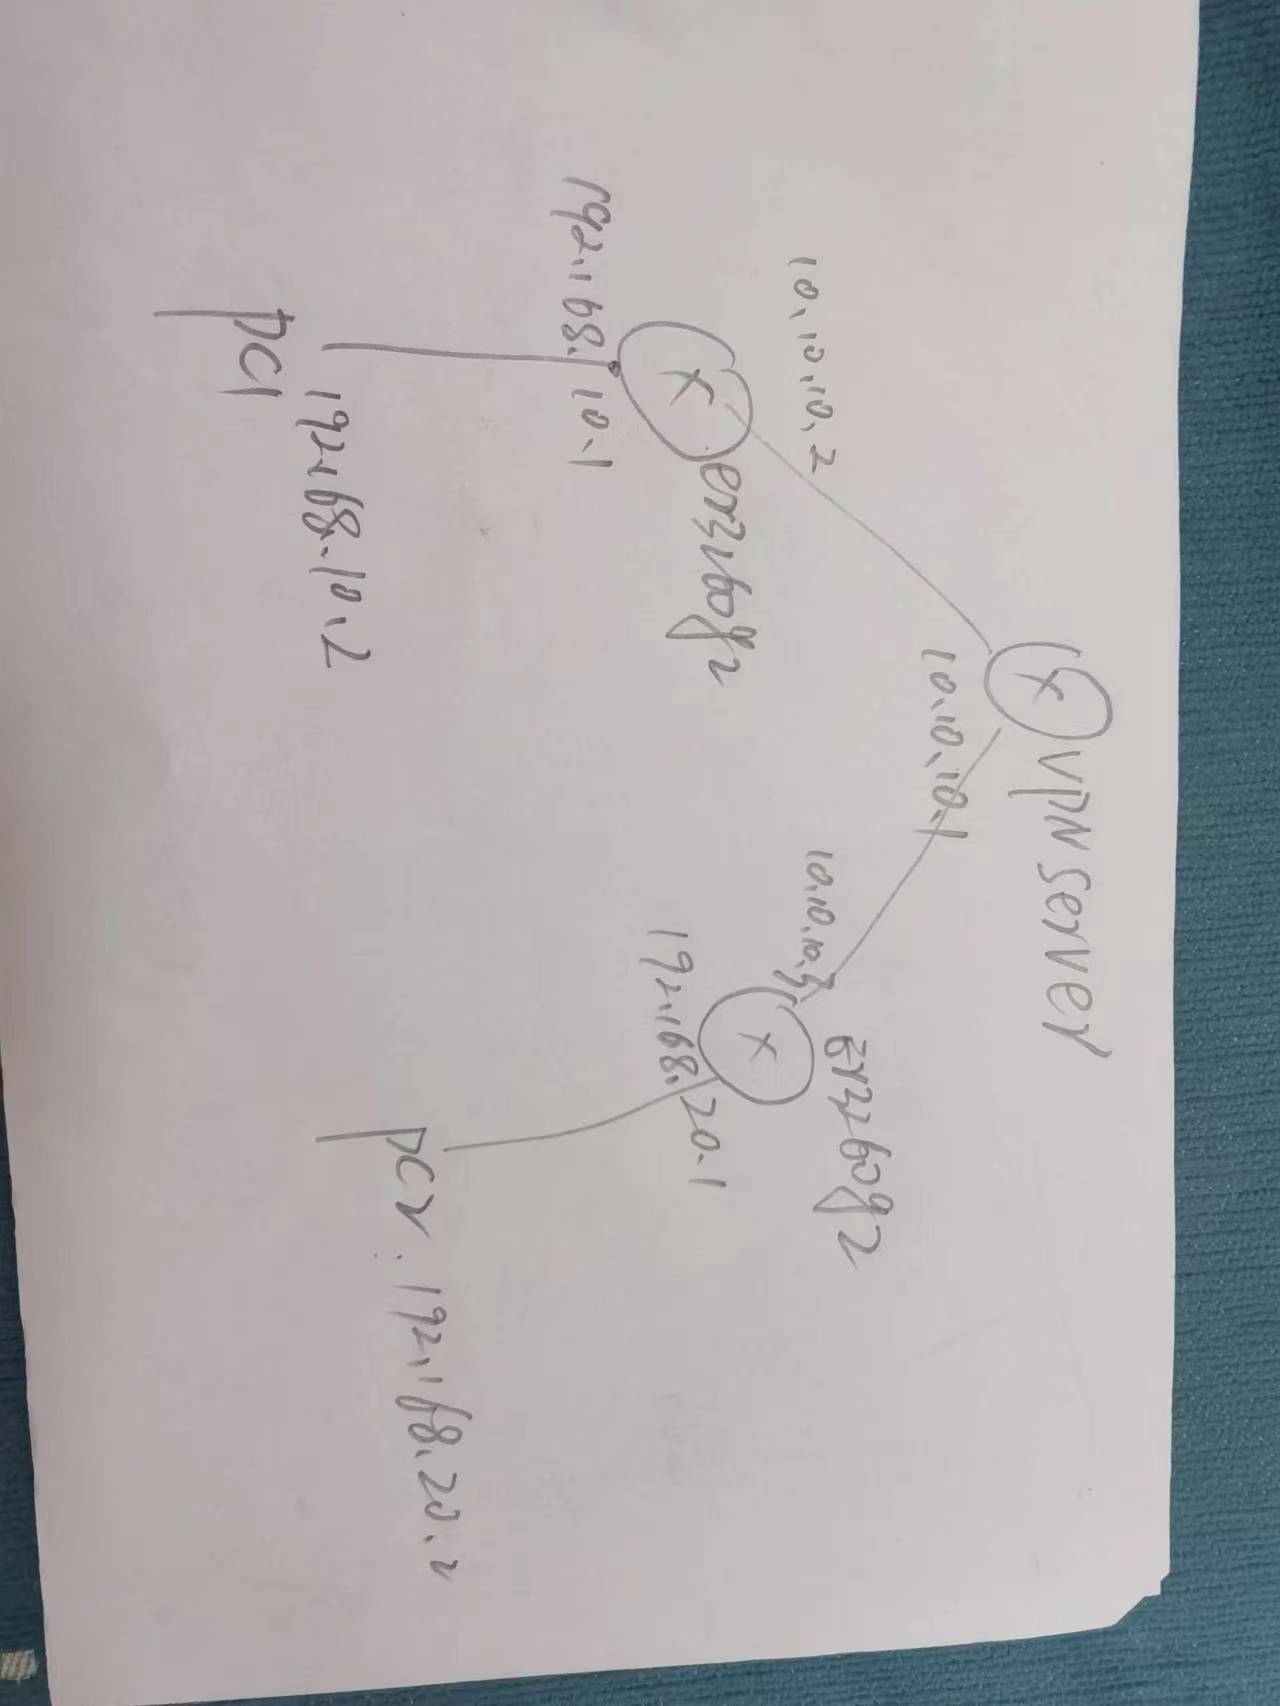 VPN server
10.10.10.1
10.10.10.2
10.10.10.3
er3260g2
Er3260g2
192.168.10.1
192.168.20.1
192.168.10.2
PC1
PC2: 192.168.20.2